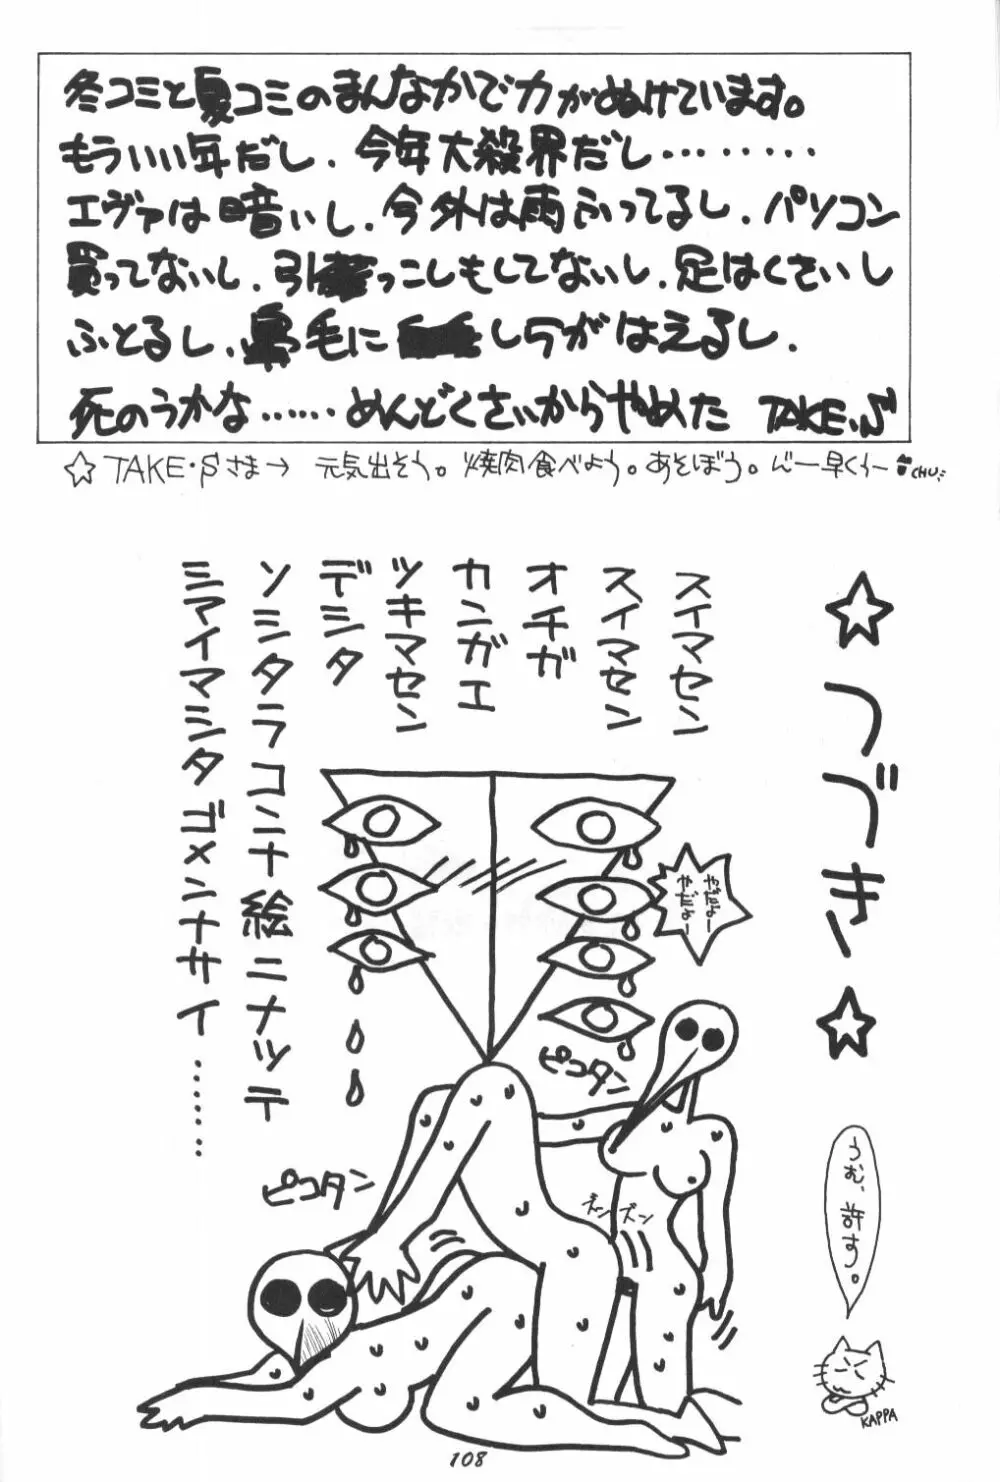 冬コミと夏コミのまんなかで力がぬけています。
もういい年だし、今年大殺界だし………
エヴァは暗いし、今外は雨ふってるし、パソコン
買ってないし、引っこしもしてないし、足はくさいし
ふとるし、鼻毛にしらがはえるし、
死のうかな……めんどくさいからやめた TAKE・S
☆TAKE・Sさま→ 元気出そう。焼肉食べよう。あそぼう。 CHU
☆つづき☆
スイマセン
スイマセン
オチガ
カンガエ
ツキマセン
デシタ
ソシタラコンナ絵ニナッテ
シマイマシタゴメンナサイ……
やだよー
やだよー
ピコタン
ピコタン
ズン
ズン
うむ、許す。
KAPPA
108